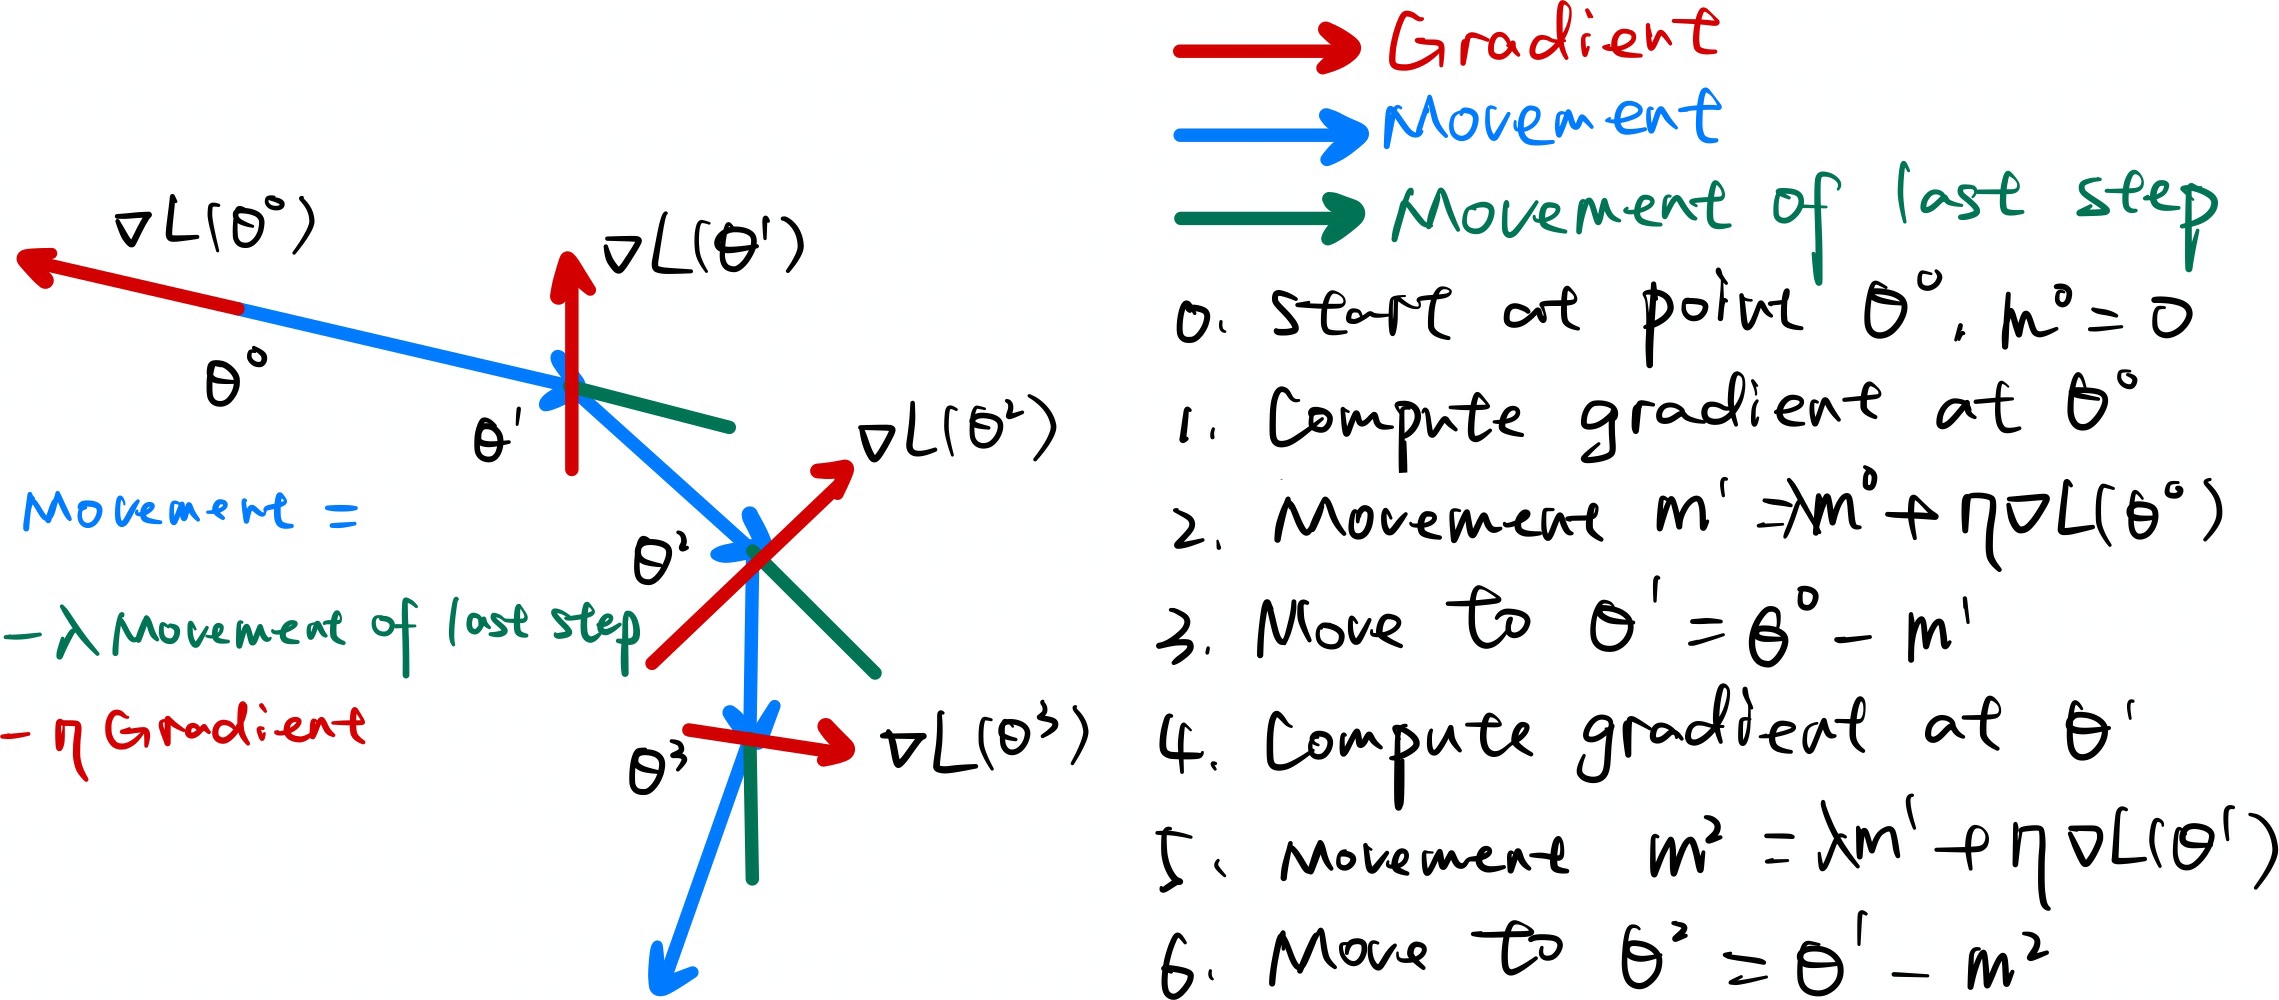 Gradient
Movement
Movement of last step
∇L(θ⁰)
∇L(θ¹)
θ⁰
θ¹
∇L(θ²)
Movement =
- λ Movement of last step
- η Gradient
θ²
θ³
∇L(θ³)
0. Start at point θ⁰, m⁰ = 0
1. Compute gradient at θ⁰
2. Movement m¹ = λm⁰ + η∇L(θ⁰)
3. Move to θ¹ = θ⁰ - m¹
4. Compute gradient at θ¹
5. Movement m² = λm¹ + η∇L(θ¹)
6. Move to θ² = θ¹ - m²